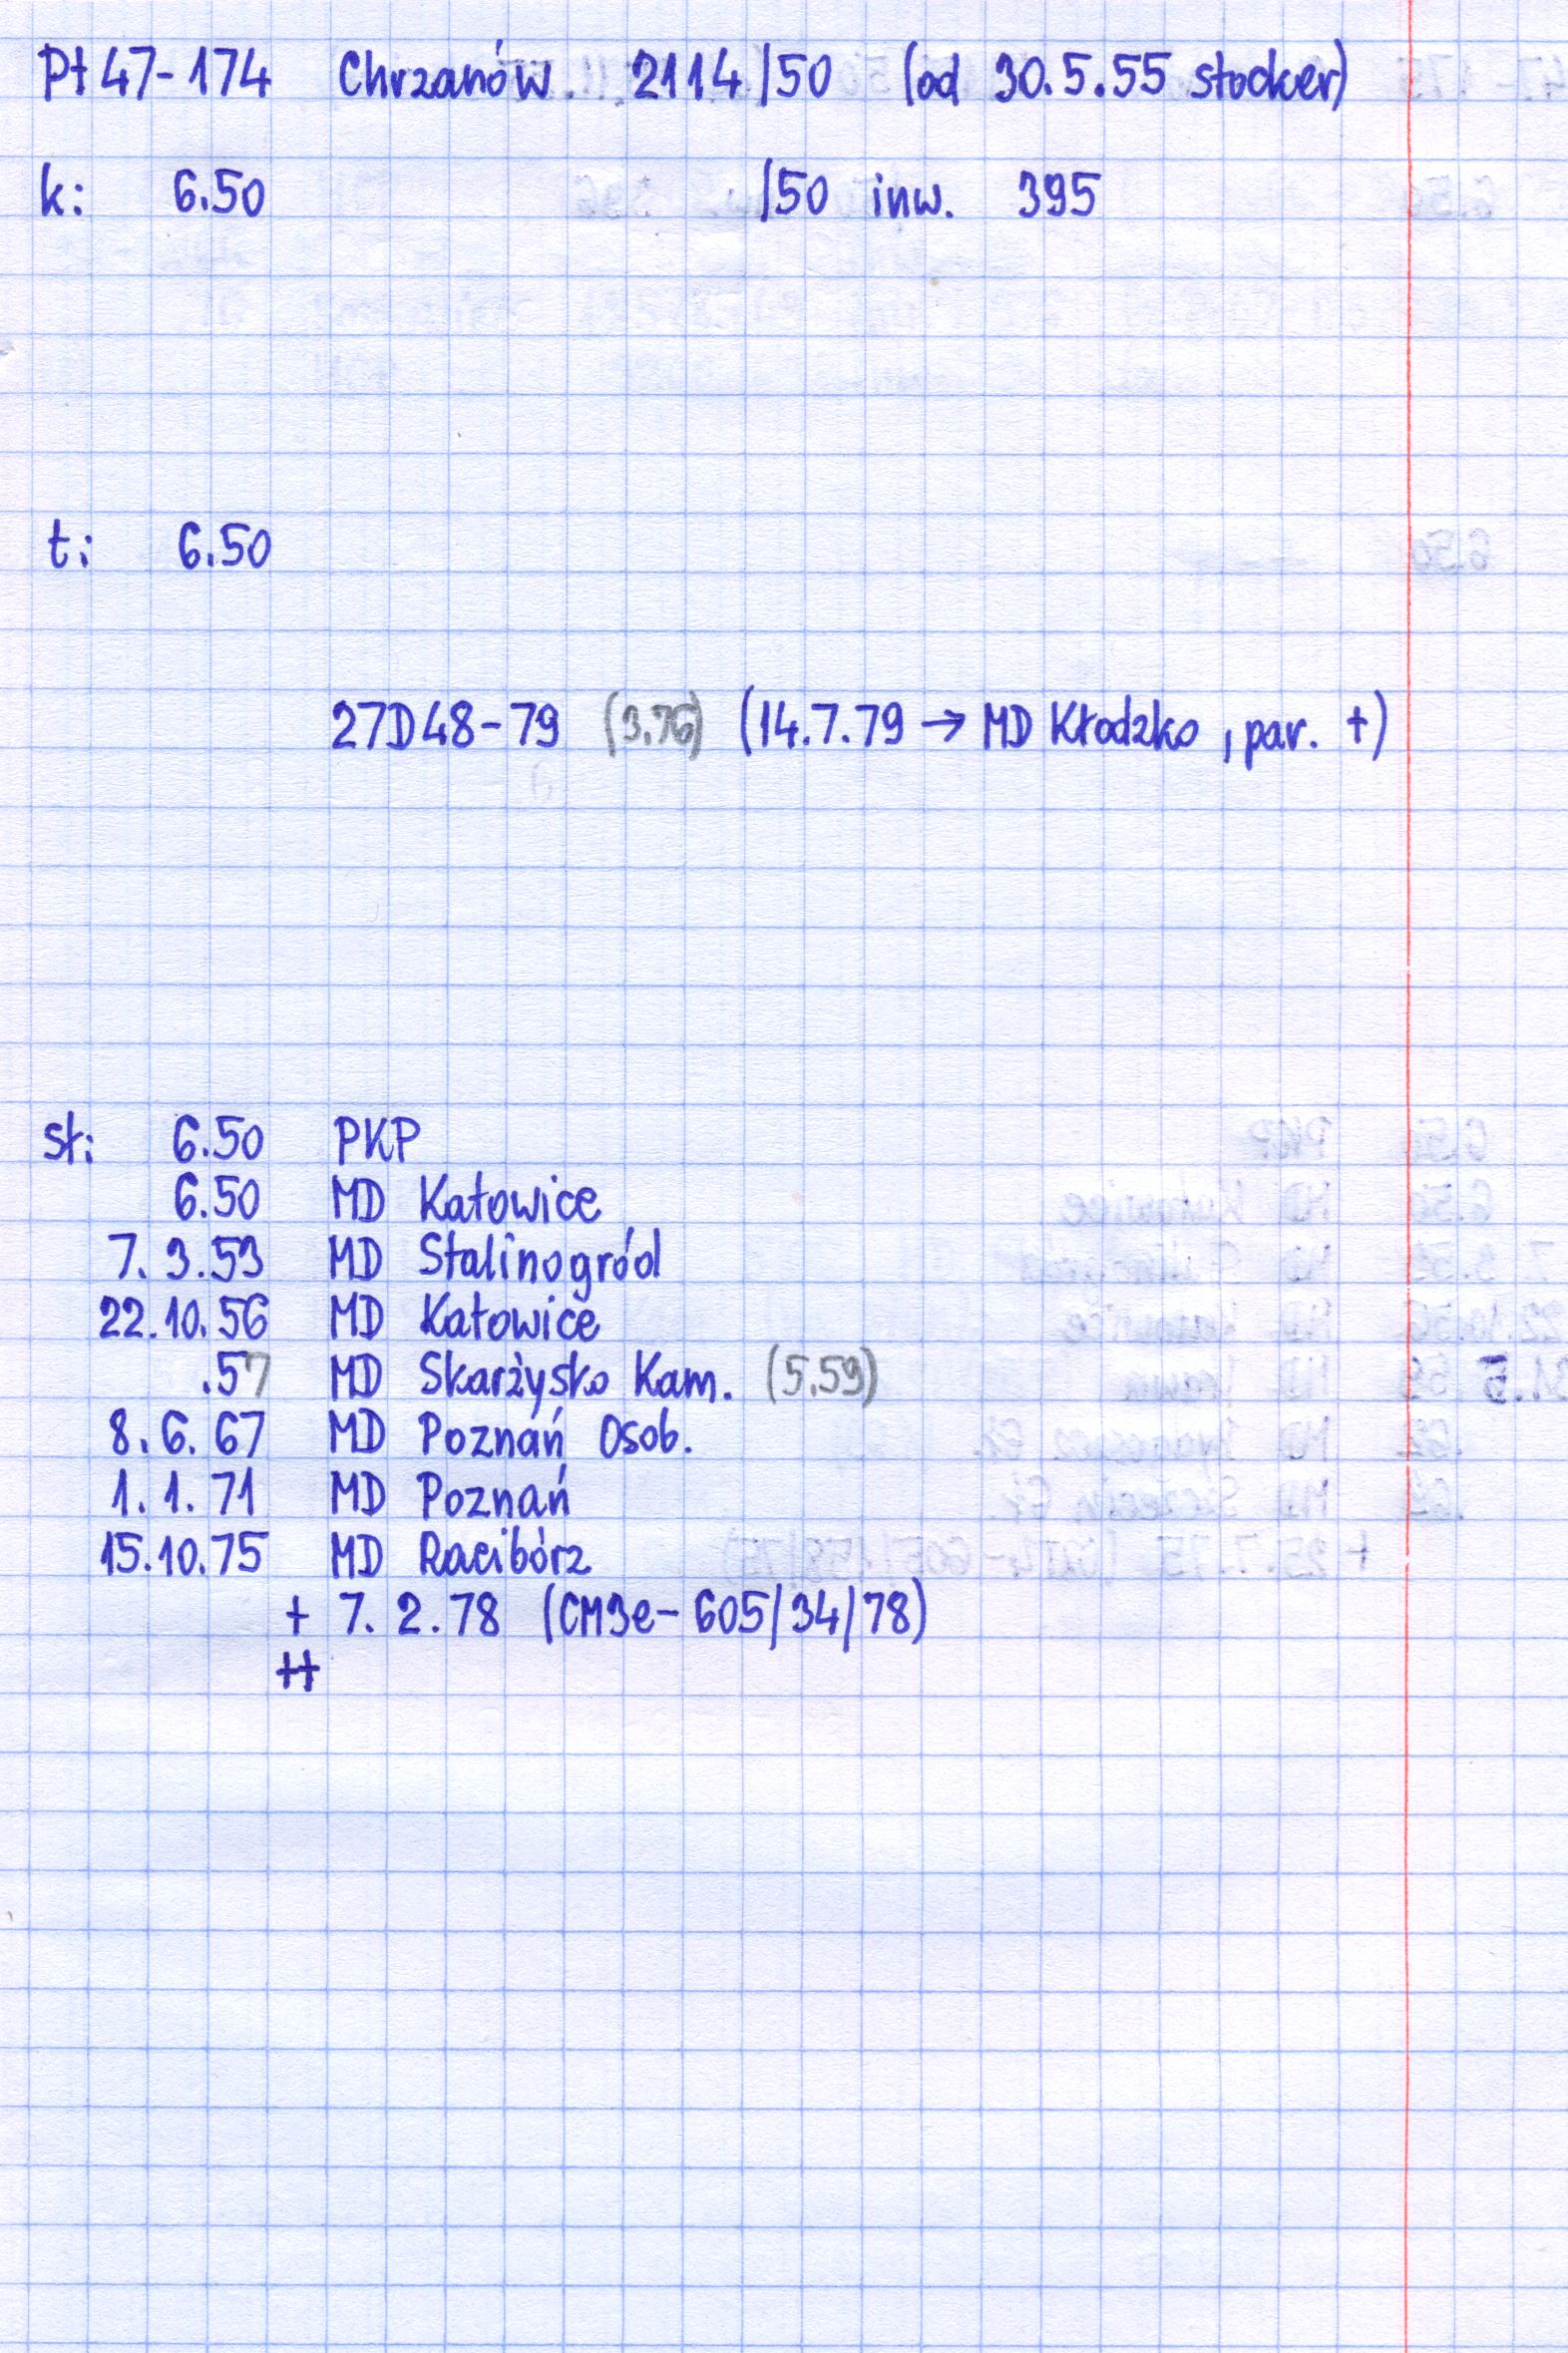 Pt47-174 Chrzanów 2114/50 (od 30.5.55 stocker)
k: 6.50 /50 inw. 395
t: 6.50
27D48-79 (3.76) (14.7.79 → MD Kłodzko, par. +)
sł: 6.50 PKP
6.50 MD Katowice
7.3.53 MD Stalinogród
22.10.56 MD Katowice
.57 MD Skarżysko Kam. (5.59)
8.6.67 MD Poznań Osob.
1.1.71 MD Poznań
15.10.75 MD Racibórz
+ 7.2.78 (CM3e-605/34/78)
++